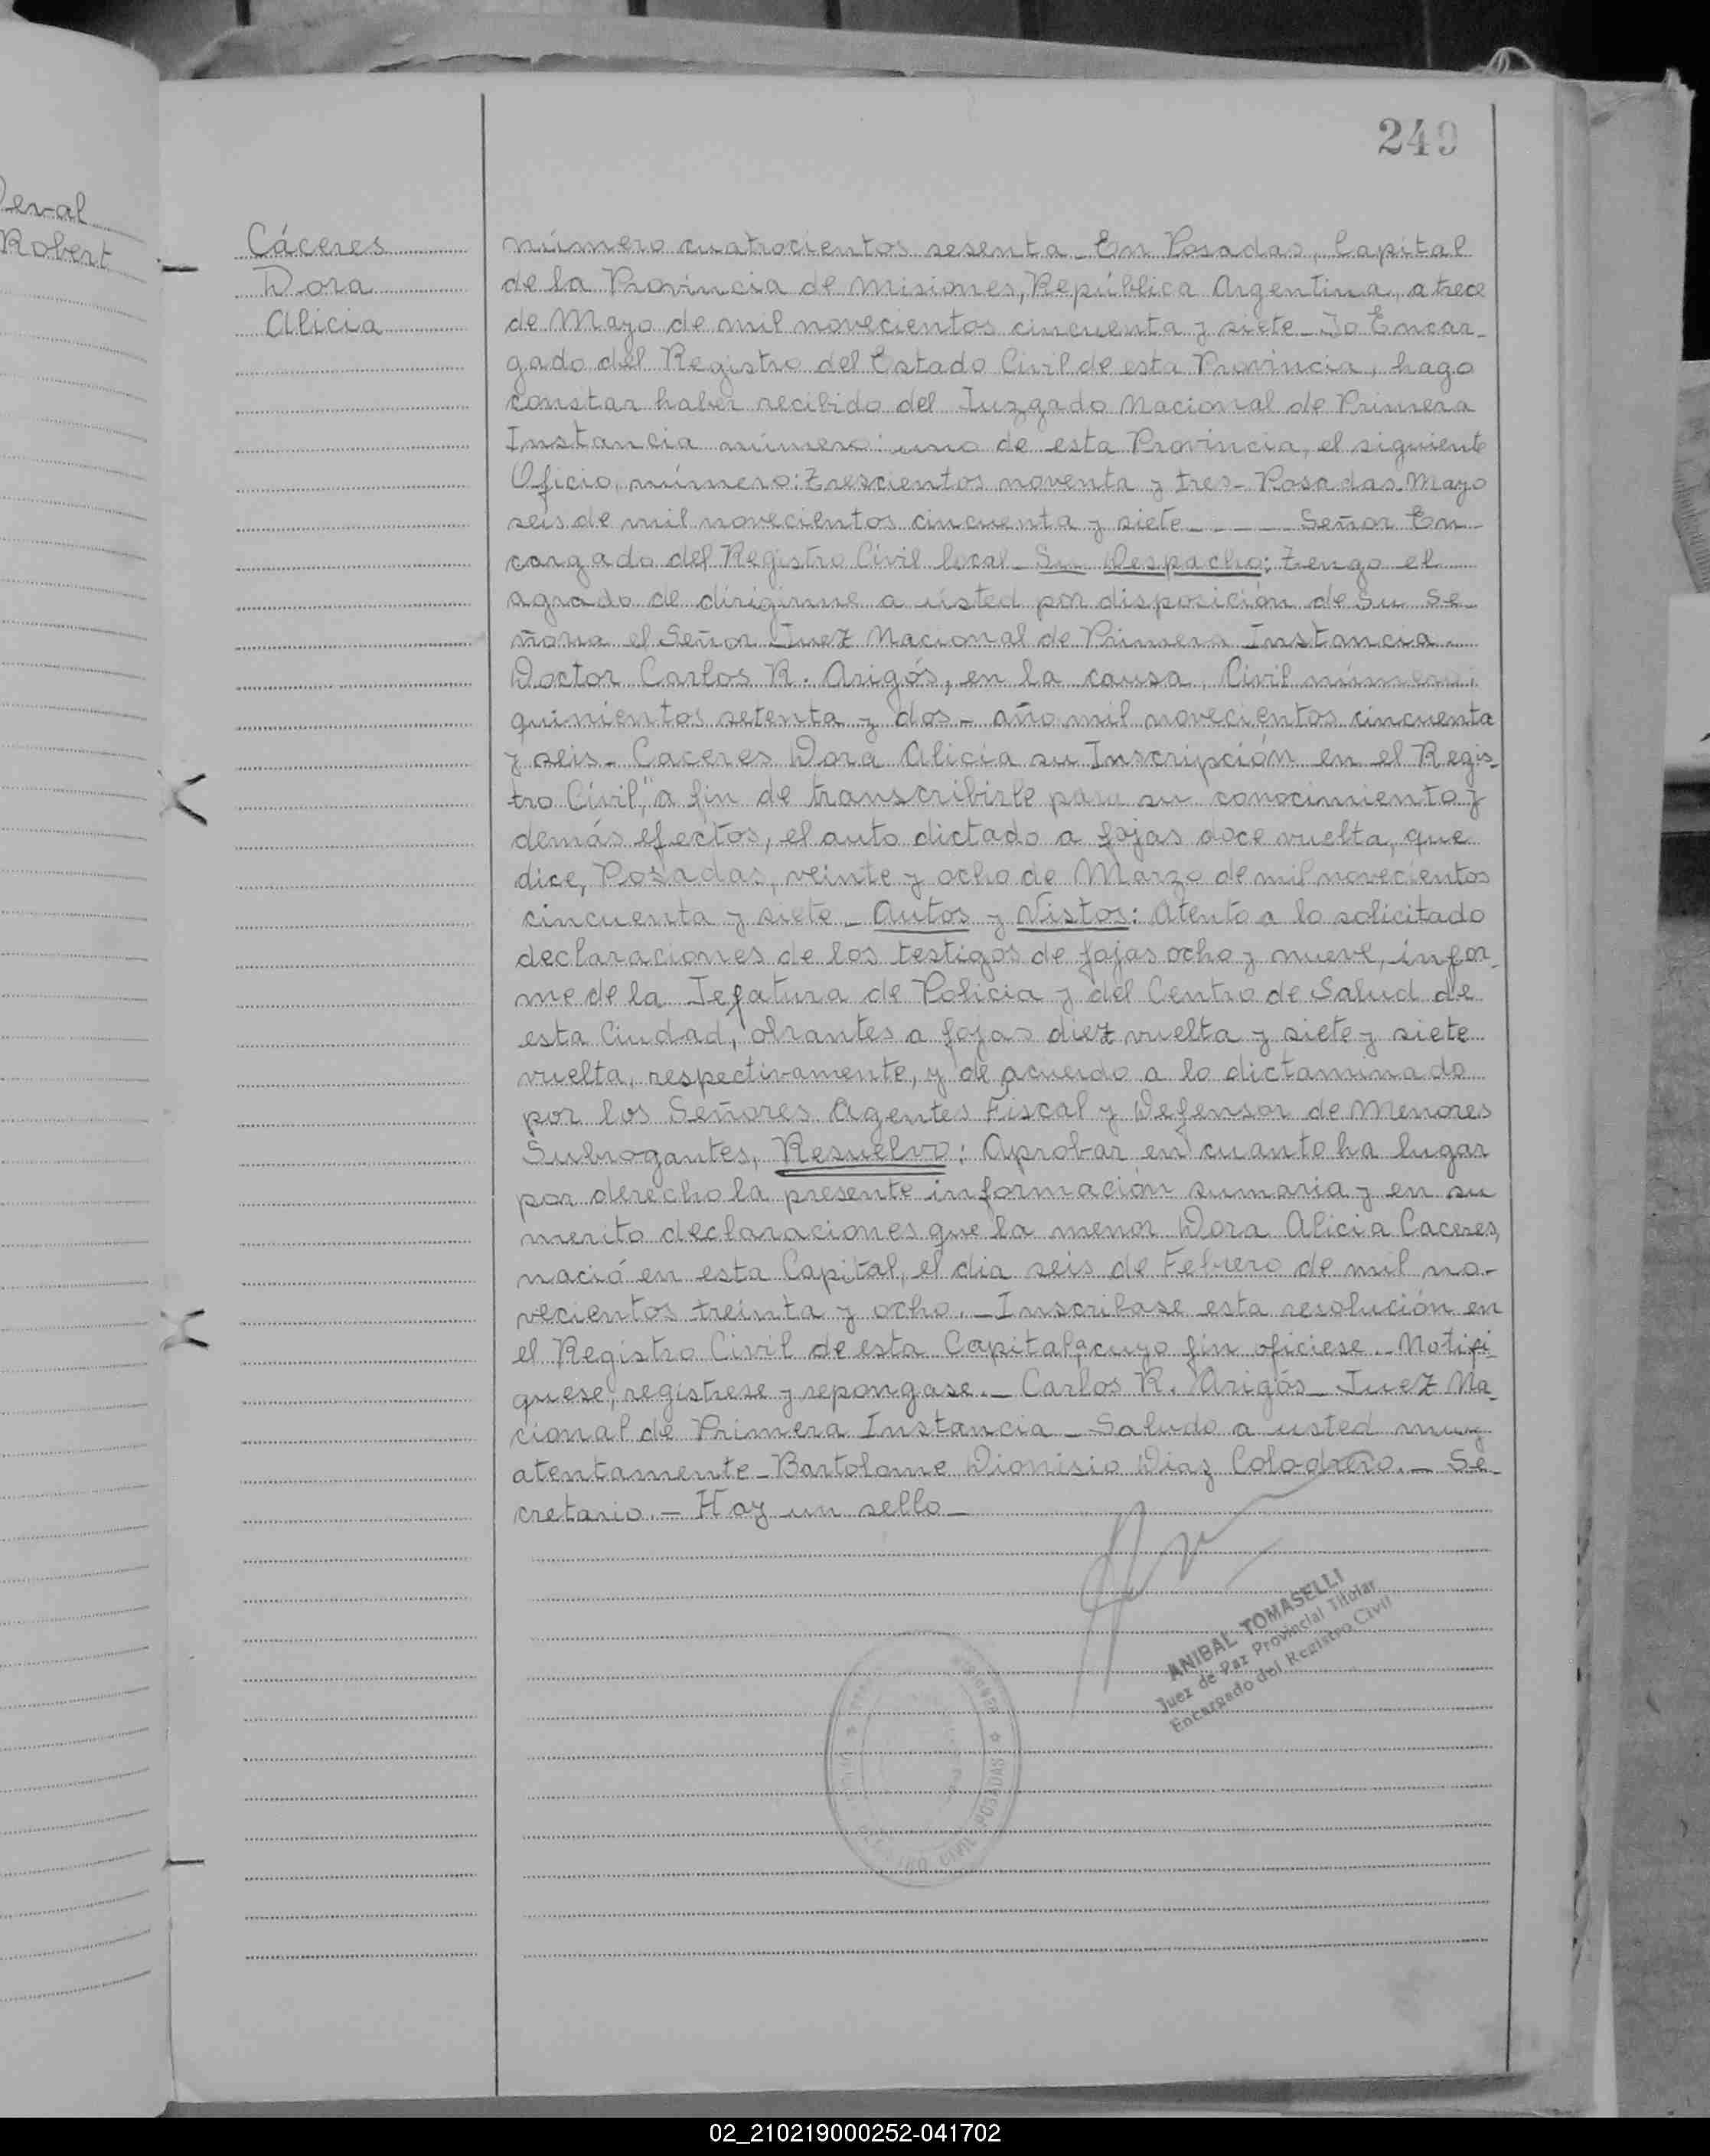 249
eval
Robert
Cáceres
Dora
Alicia
número cuatrocientos sesenta_ En Posadas, Capital
de la Provincia de Misiones, República Argentina, a trece
de Mayo de mil novecientos cincuenta y siete_ Yo Encar_
gado del Registro del Estado Civil de esta Provincia, hago
constar haber recibido del Juzgado Nacional de Primera
Instancia número: uno de esta Provincia, el siguiente
Oficio, número: Trescientos noventa y tres_ Posadas. Mayo
seis de mil novecientos cincuenta y siete_ _ _ _ Señor En_
cargado del Registro Civil local_ Su Despacho: Tengo el
agrado de dirigirme a usted por disposición de Su Se_
ñoria el Señor Juez Nacional de Primera Instancia.
Doctor Carlos R. Arigós, en la causa, Civil número,
quinientos setenta y dos_ año mil novecientos cincuenta
y seis_ Caceres Dora Alicia su Inscripción en el Regis_
tro Civil," a fin de transcribirle para su conocimiento y
demás efectos, el auto dictado a fojas doce vuelta, que
dice, Posadas, veinte y ocho de Marzo de mil novecientos
cincuenta y siete_ Autos y Vistos: Atento a lo solicitado
declaraciones de los testigos de fojas ocho y nueve, infor_
me de la Jefatura de Policia y del Centro de Salud de
esta Ciudad, obrantes a fojas diez vuelta y siete y siete
vuelta, respectivamente, y de acuerdo a lo dictaminado
por los Señores Agentes Fiscal y Defensor de Menores
Subrogantes, Resuelvo: Aprobar en cuanto ha lugar
por derecho la presente información sumaria y en su
merito declaraciones que la menor Dora Alicia Caceres,
nació en esta Capital, el dia seis de Febrero de mil no-
vecientos treinta y ocho._ Inscribase esta resolución en
el Registro Civil de esta Capital a cuyo fin oficiese_ Notifi_
quese, registrese y repongase._ Carlos R. Arigós_ Juez Na_
cional de Primera Instancia_ Saludo a usted muy
atentamente_ Bartolome Dionisio Diaz Colodrero._ Se_
cretario._ Hay un sello_
ANIBAL TOMASELLI
Juez de Paz Provincial Titular
Encargado del Registro Civil
CIVIL POSADAS
02_210219000252-041702